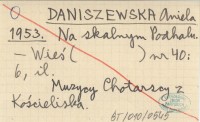 O DANISZEWSKA Aniela
1953. Na skalnym Podhalu.
- Wieś ( ) nr 40:
6, il.
Muzycy Chotarscy z
Kościeliska.
BT/010/0545